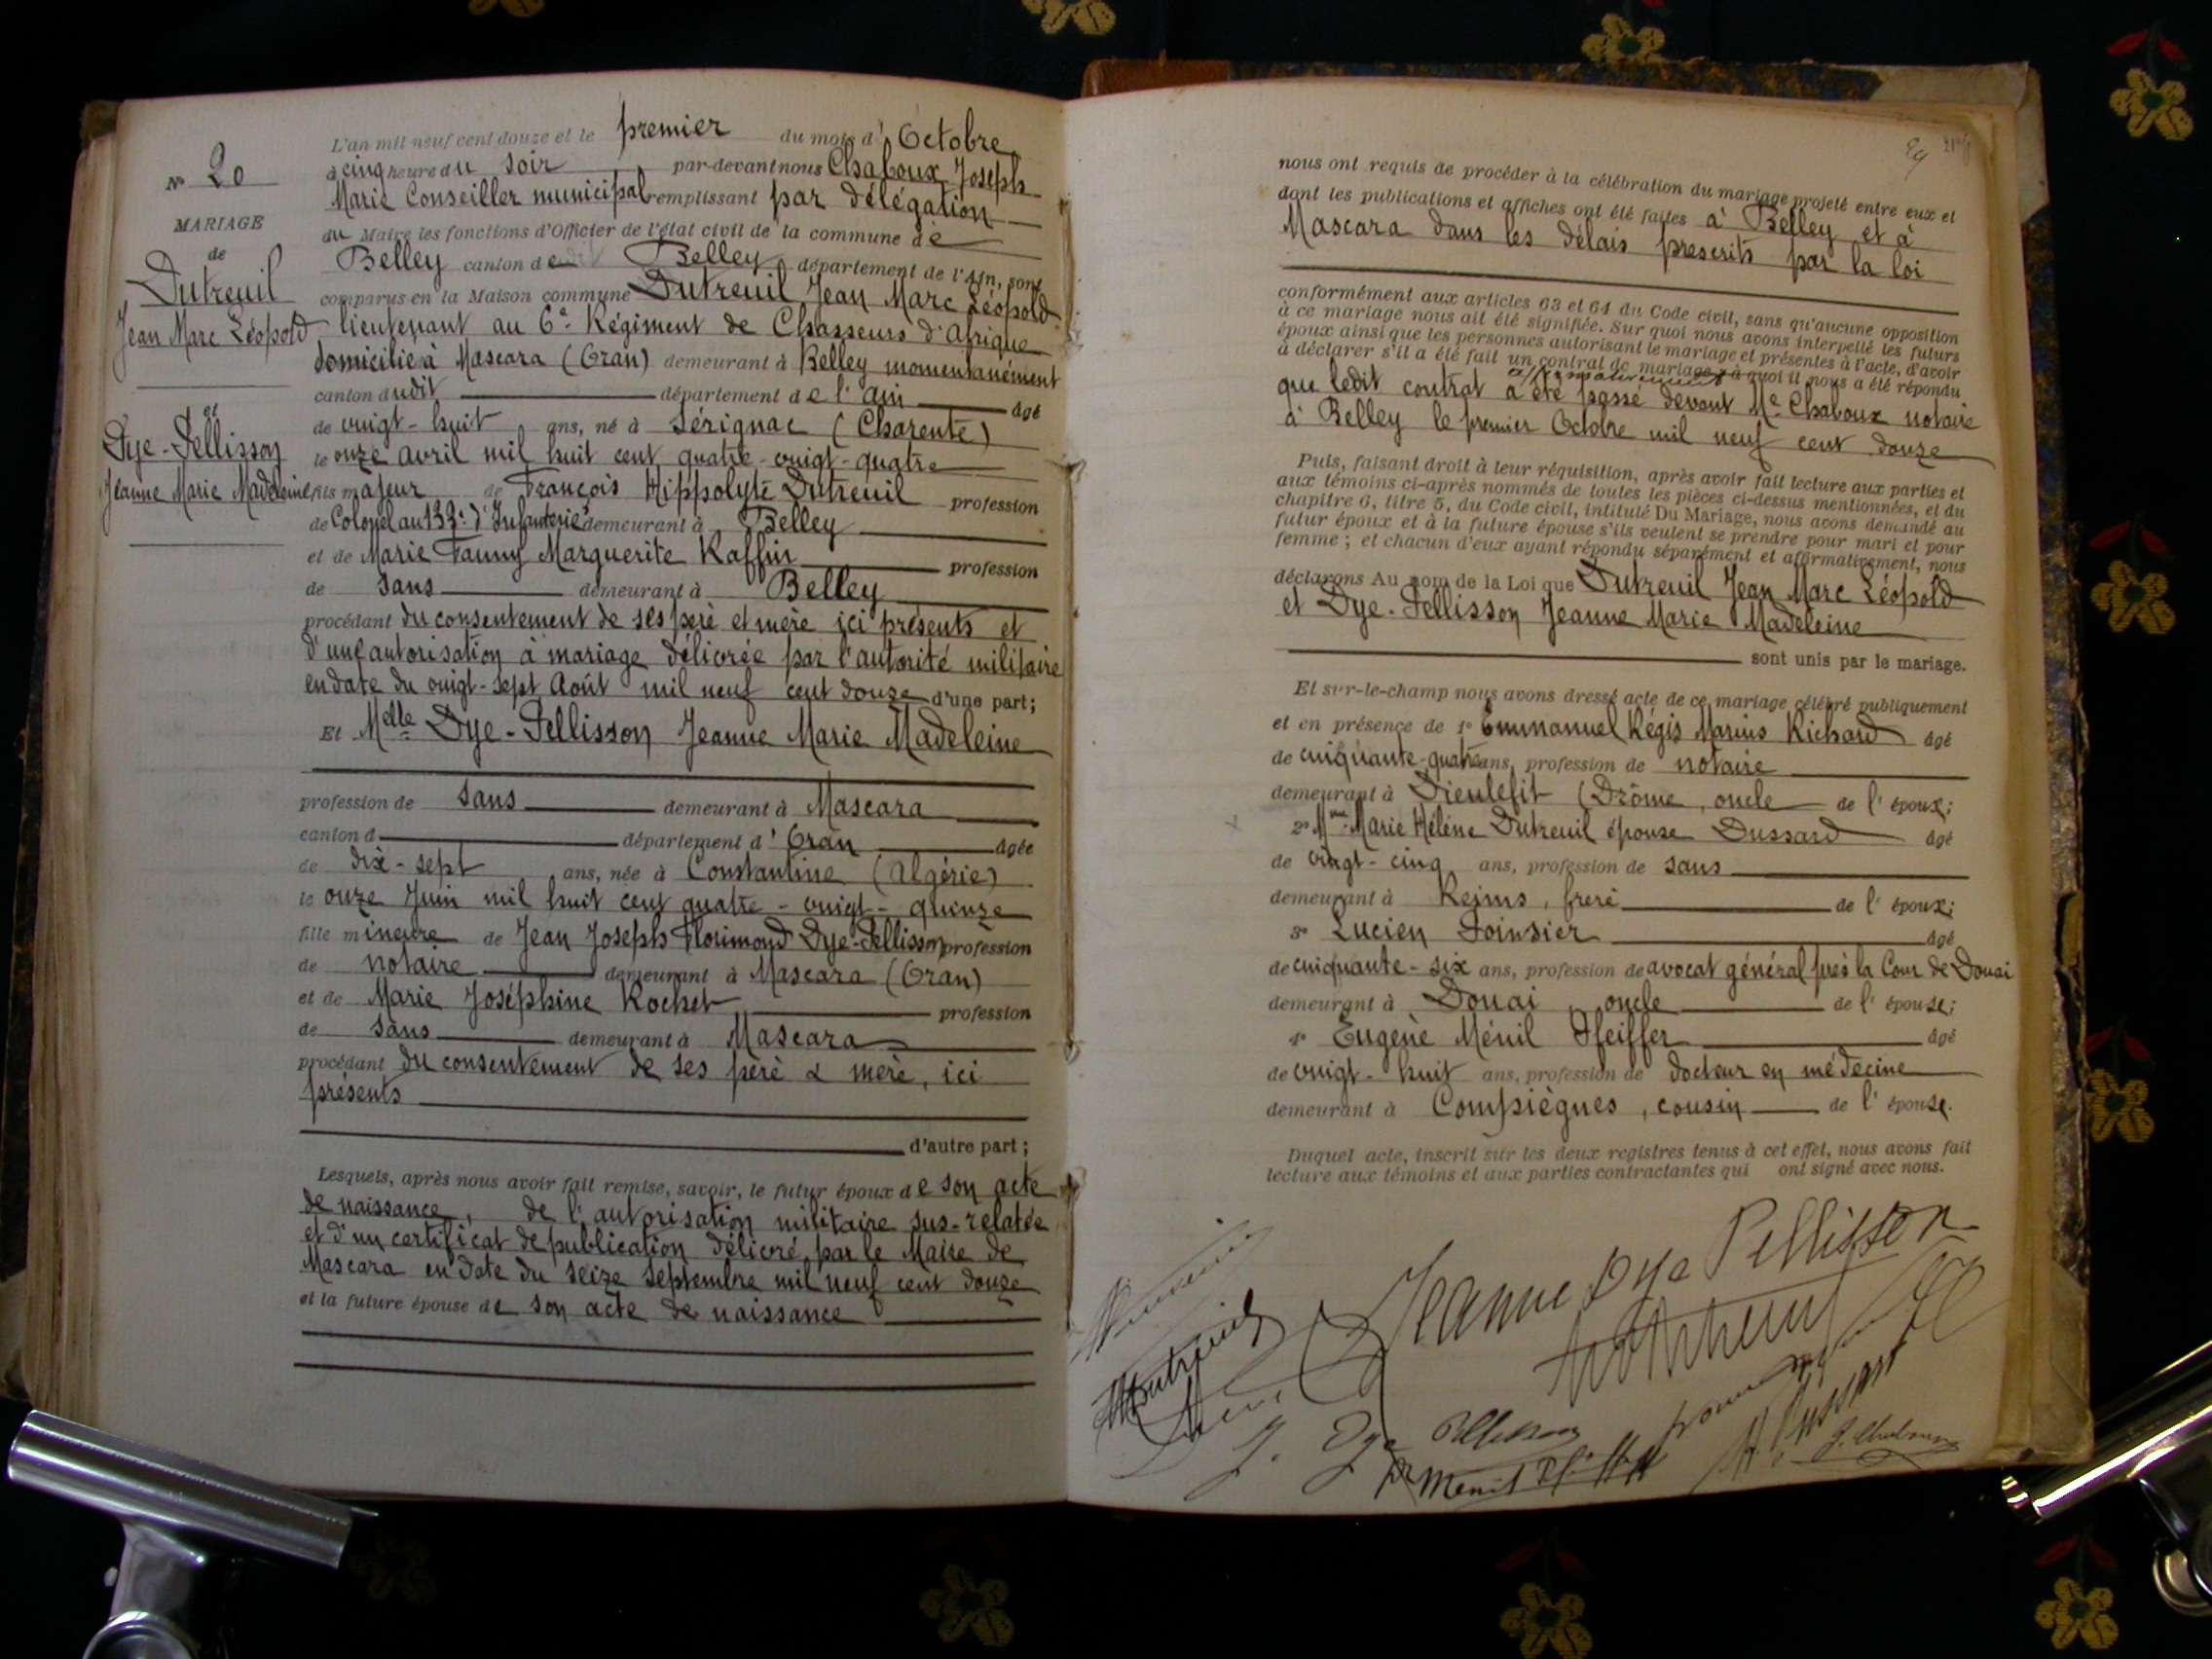 N° 20
MARIAGE
de
Dutreuil
Jean Marc Léopold
et
Dye-Pellisson
Jeanne Marie Madeleine
L'an mil neuf cent douze et le premier du mois d'Octobre
à cinq heure du soir par-devant nous Chaboux Joseph
Marie Conseiller municipal remplissant par délégation
du Maire les fonctions d'Officier de l'état civil de la commune de
Belley canton de Belley département de l'Ain, sont
comparus en la Maison commune Dutreuil Jean Marc Léopold
lieutenant au 6e Régiment de Chasseurs d'Afrique
domicilié à Mascara (Oran) demeurant à Belley momentanément
canton dudit département de l'Ain âgé
de vingt-huit ans, né à Sérignac (Charente)
le onze avril mil huit cent quatre-vingt-quatre
fils majeur de François Hippolyte Dutreuil profession
de Colonel au 133e d'Infanterie demeurant à Belley
et de Marie Fanny Marguerite Raffin profession
de sans demeurant à Belley
procédant du consentement de ses père et mère ici présents et
d'une autorisation à mariage délivrée par l'autorité militaire
en date du vingt-sept Août mil neuf cent douze d'une part;
Et Melle Dye-Pellisson Jeanne Marie Madeleine
profession de sans demeurant à Mascara
canton d département d'Oran âgée
de dix-sept ans, née à Constantine (Algérie)
le onze Juin mil huit cent quatre-vingt-quinze
fille mineure de Jean Joseph Florimond Dye-Pellisson profession
de notaire demeurant à Mascara (Oran)
et de Marie Joséphine Rochet profession
de sans demeurant à Mascara
procédant du consentement de ses père & mère, ici
présents
d'autre part;
Lesquels, après nous avoir fait remise, savoir, le futur époux de son acte
de naissance, de l'autorisation militaire sus-relatée
et d'un certificat de publication délivré par le Maire de
Mascara en date du seize septembre mil neuf cent douze
et la future épouse de son acte de naissance
29
nous ont requis de procéder à la célébration du mariage projeté entre eux et
dont les publications et affiches ont été faites à Belley et à
Mascara dans les délais prescrits par la loi
conformément aux articles 63 et 64 du Code civil, sans qu'aucune opposition
à ce mariage nous ait été signifiée. Sur quoi nous avons interpellé les futurs
époux ainsi que les personnes autorisant le mariage et présentes à l'acte, d'avoir
à déclarer s'il a été fait un contrat de mariage, à quoi il nous a été répondu
affirmativement
que ledit contrat a été passé devant Me Chaboux notaire
à Belley le premier Octobre mil neuf cent douze
Puis, faisant droit à leur réquisition, après avoir fait lecture aux parties et
aux témoins ci-après nommés de toutes les pièces ci-dessus mentionnées, et du
chapitre 6, titre 5, du Code civil, intitulé Du Mariage, nous avons demandé au
futur époux et à la future épouse s'ils veulent se prendre pour mari et pour
femme; et chacun d'eux ayant répondu séparément et affirmativement, nous
déclarons Au nom de la Loi que Dutreuil Jean Marc Léopold
et Dye-Pellisson Jeanne Marie Madeleine
sont unis par le mariage.
Et sur-le-champ nous avons dressé acte de ce mariage célébré publiquement
et en présence de 1° Emmanuel Régis Marius Richard âgé
de cinquante-quatre ans, profession de notaire
demeurant à Dieulefit (Drôme, oncle de l'époux;
2° Mme Marie Hélène Dutreuil épouse Dussard âgé
de vingt-cinq ans, profession de sans
demeurant à Reims, frère de l'époux;
3° Lucien Poinsier âgé
de cinquante-six ans, profession de avocat général près la Cour de Douai
demeurant à Douai, oncle de l'épouse;
4° Eugène Ménil Pfeiffer âgé
de vingt-huit ans, profession de docteur en médecine
demeurant à Compiègnes, cousin de l'épouse.
Duquel acte, inscrit sur les deux registres tenus à cet effet, nous avons fait
lecture aux témoins et aux parties contractantes qui ont signé avec nous.
Jeanne Dye Pellisson
J. Dye Pellisson
J. Chaboux